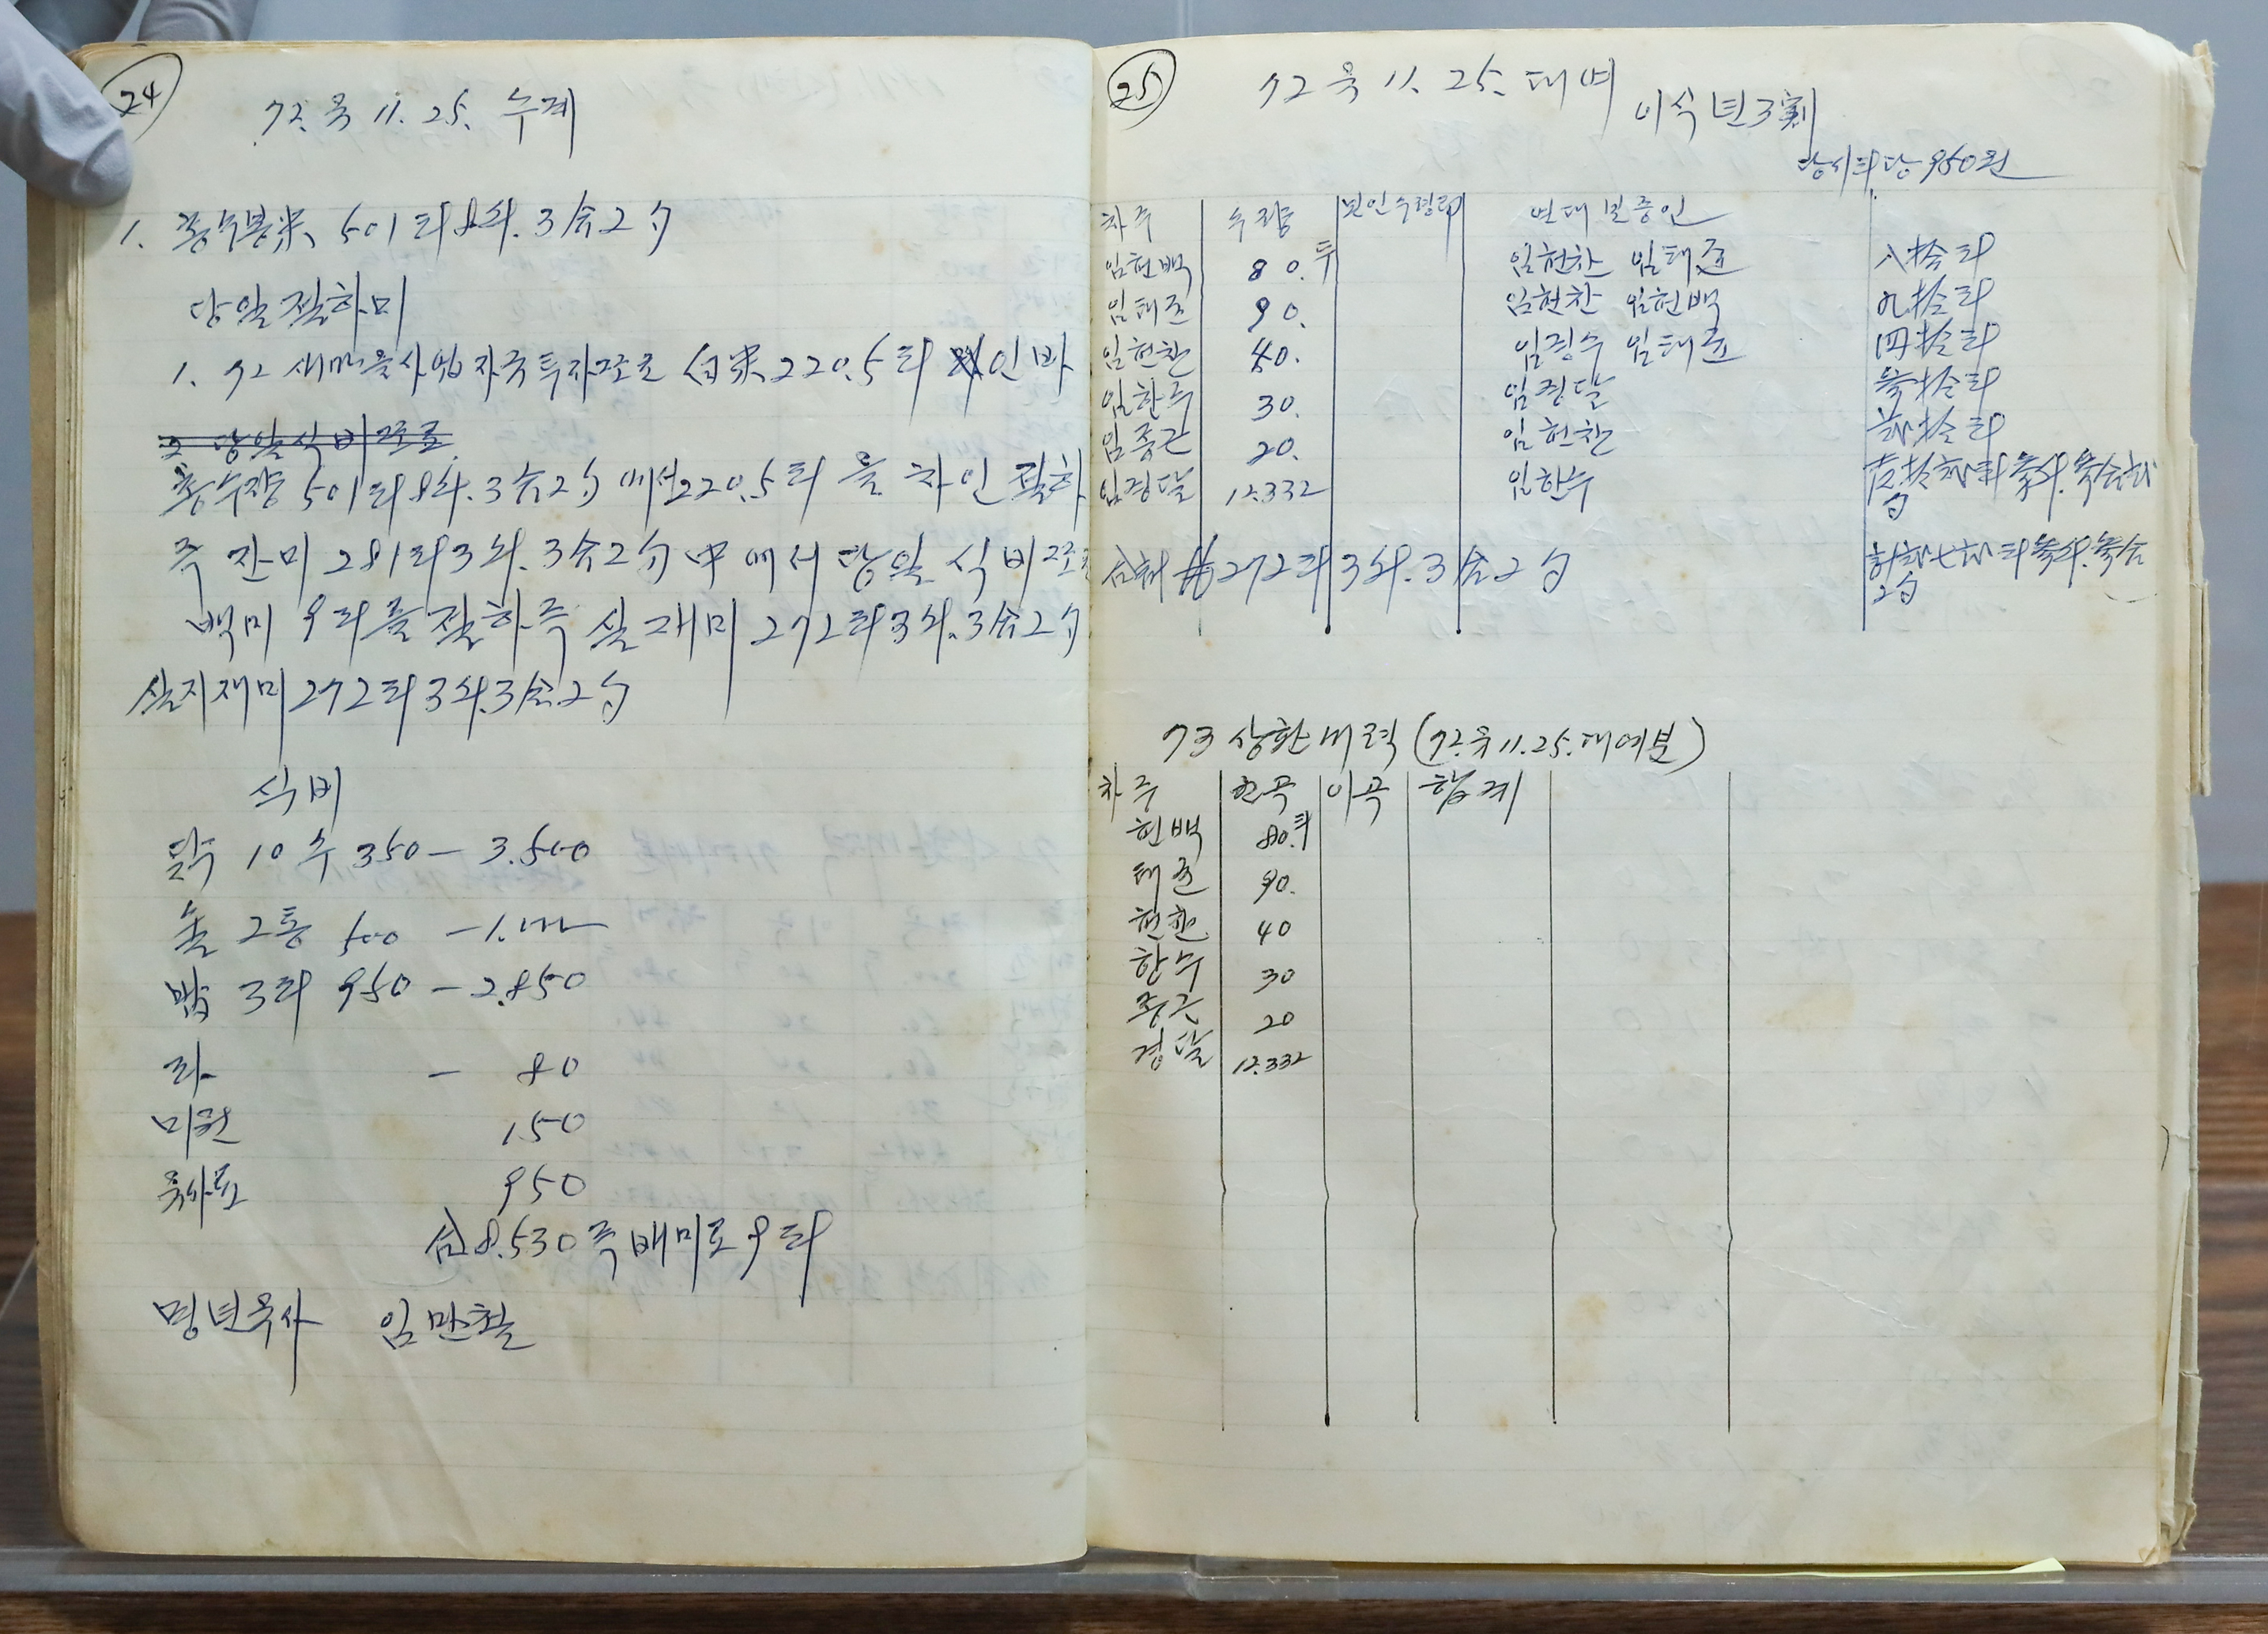 24
72. 음 11. 25. 수계
1. 총수봉米 501되8勺.3合2勺
당일 절하미
1. 72 새마을사업 자국투자조로 白米 220.5되 인바
2 당일식비조로
총수량 501되8작.3合2勺에서 220.5되을 차인 절하
즉 잔미 281되3작.3合2勺中에서 당일 식비조로
백미 9되를 절하즉 실재미 272되3작.3合2勺
실지재미 272되3작.3合2勺
식비
닭 10수 350 - 3.500
술 2통 500 - 1.000
밥 3되 950 - 2.850
파 - 80
미원 150
950
合 8.530 즉 백미로 9되
명년유사 임만철
25
72 음 11. 25. 대여
이식 년3割
당시되당 950원
차주 수량 본인수령印 연대보증인
임헌백 80.두 임헌찬 임태준 八拾되
임태준 90. 임헌찬 임헌백 九拾되
임헌찬 40. 임경수 임태준 四拾되
임한수 30. 임경달 參拾되
임종근 20. 임헌찬 貳拾되
임경달 12.332 임한수 壹拾貳되參작.參合貳勺
合計 272되3작.3合2勺 計貳七貳되參작.參合2勺
73 상환내력 (72.음11.25.대여분)
차주 원곡 이곡 합계
헌백 80.되
태준 90.
헌찬 40
한수 30
종근 20
경달 12.332